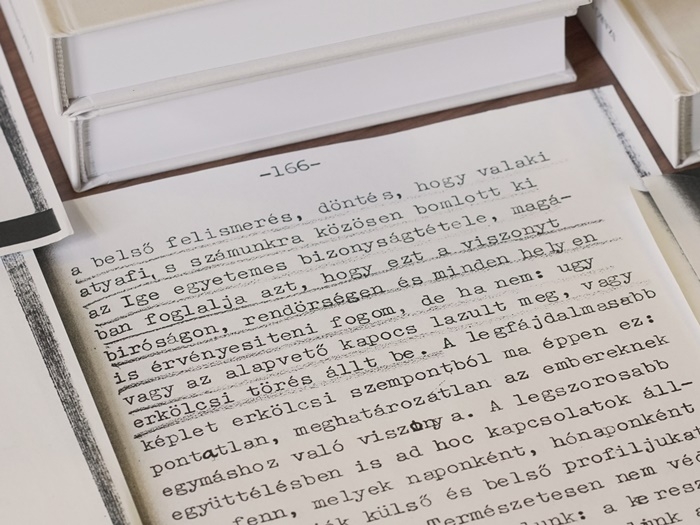 -166-
a belső felismerés, döntés, hogy valaki
atyafi, s számunkra közösen bomlott ki
az Ige egyetemes bizonyságtétele, magá-
ban foglalja azt, hogy ezt a viszonyt
biróságon, rendőrségen és minden helyen
is érvényesiteni fogom, de ha nem: ugy
vagy az alapvető kapocs lazult meg, vagy
erkölcsi törés állt be. A legfájdalmasabb
képlet erkölcsi szempontból ma éppen ez:
pontatlan, meghatározatlan az embereknek
egymáshoz való viszonya. A legszorosabb
együttélésben is ad hoc kapcsolatok áll-
fenn, melyek naponként, hónaponként
külső és belső profiljukat
Természetesen nem
a keresz